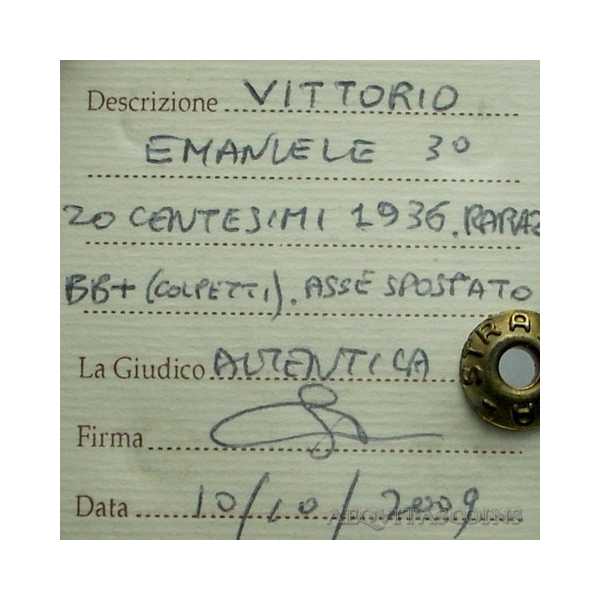 Descrizione VITTORIO
EMANUELE 3°
20 CENTESIMI 1936. RARA2
BB+ (COLPETTI). ASSE SPOSTATO
La Giudico AUTENTICA
Firma
Data 10/10/2009
STRA